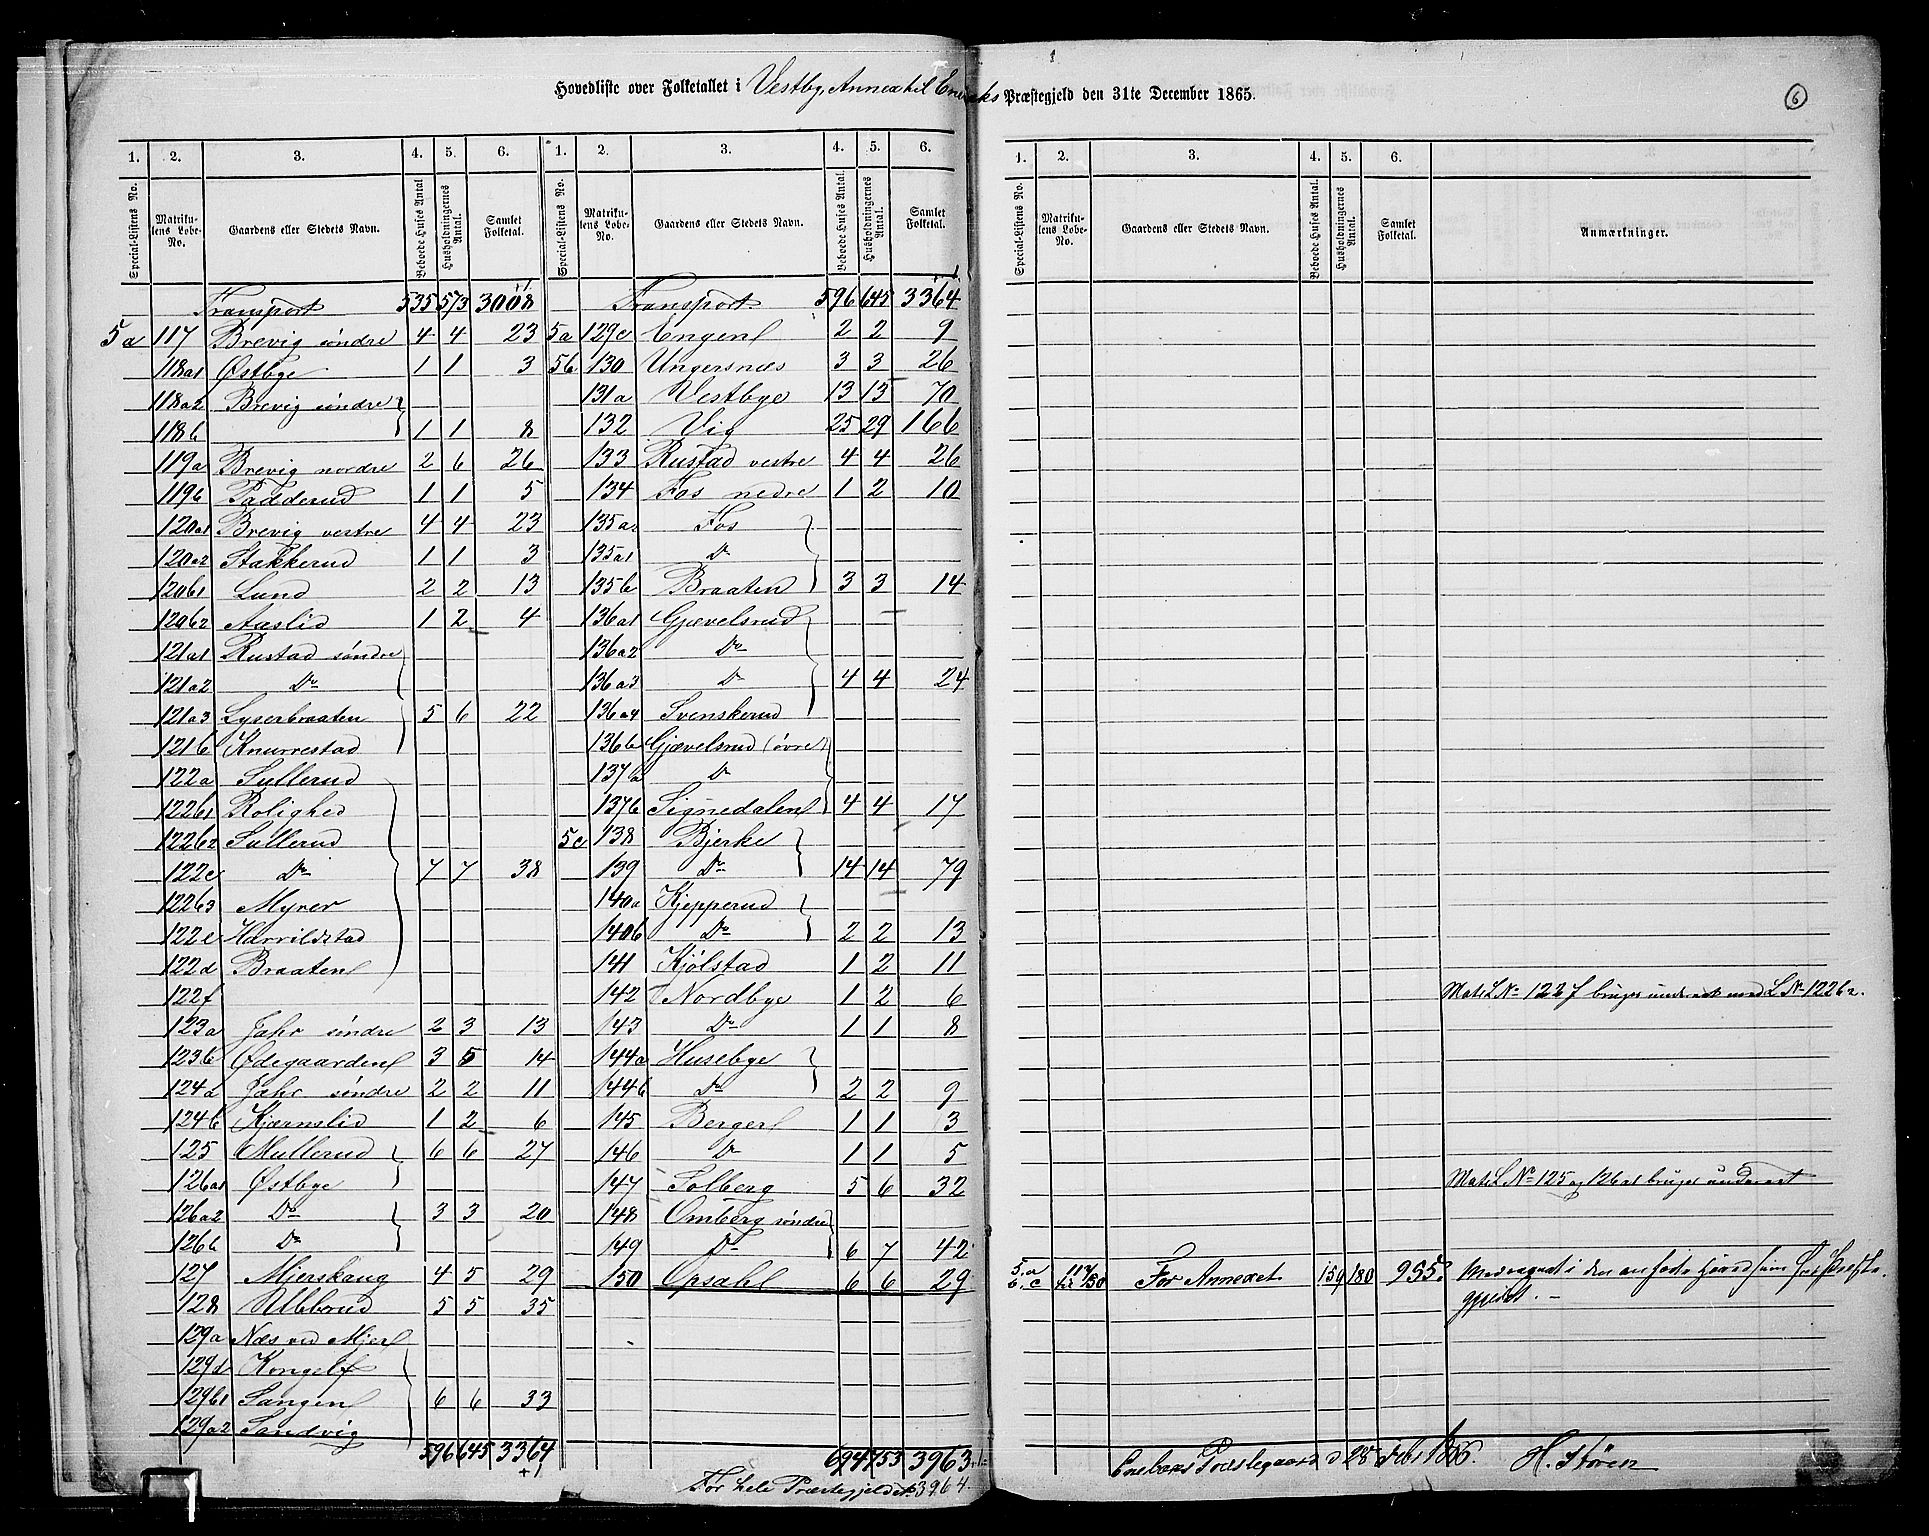 Hovedliste over Folketallet i Vestby, Annex til Enebaks Præstegjeld den 31te December 1865.
6
1. 2. 3. 4. 5. 6. 1. 2. 3. 4. 5. 6.
Special-Listens No. Matrikulens Løbe-No. Gaardens eller Stedets Navn. Beboede Huses Antal Husholdningernes Antal. Samlet Folketal. Special-Listens No. Matrikulens Løbe-No. Gaardens eller Stedets Navn. Beboede Huses Antal. Husholdningernes Antal. Samlet Folketal.
Transport 535 573 3008
5a 117 Brevig søndre 4 4 23
118a1 Østbye 1 1 3
118a2 Brevig søndre
118b 1 1 8
119a Brevig nordre 2 6 26
119b Padderud 1 1 5
120a1 Brevig vestre 4 4 23
120a2 Stakkerud 1 1 3
120b1 Lund 2 2 13
120b2 Aaslid 1 2 4
121a1 Rustad søndre
121a2 Do
121a3 Lyserbraaten 5 6 22
121b Knurrestad
122a Sullerud
122b1 Rolighed
122b2 Sullerud
122c Do 7 7 38
122b3 Myrer
122e Harrildstad
122d Braaten
122f
123a Jahr søndre 2 3 13
123b Ødegaarden 3 5 14
124a Jahr søndre 2 2 11
124b Kjærnslid 1 2 6
125 Mullerud 6 6 27
126a1 Østbye
126a2 Do 3 3 20
126b Do
127 Mjerskaug 4 5 29
128 Ubbrud 5 5 35
129a Næs ved Mjer
129d Kongelf
129b1 Tangen 6 6 33
129a2 Sandvig
596 645 3364
+1
Transport 596 645 3364
5a 129c Engen 2 2 9
5b 130 Ungersnæs 3 3 26
131a Vestbye 13 15 70
132 Vig 25 29 166
133 Rustad vestre 4 4 26
134 Fos nedre 1 2 10
135a2 Fos
135a1 Do
135b Braaten 3 3 14
136a1 Gjævelsrud
136a2 Do
136a3 Do 4 4 24
136a4 Svenskerud
136b Gjævelsrud (øvre)
137a Do
137b Signedalen 4 4 17
5c 138 Bjerke
139 Do 14 14 79
140a Kjepperud
140b Do 2 2 13
141 Kjølstad 1 2 11
142 Nordbye 1 2 6
143 Do 1 1 8
144a Husebye
144b Do 2 2 9
145 Berger 1 1 3
146 Do 1 1 5
147 Tolberg 5 6 32
148 Omberg søndre
149 Do 6 7 42
150 Opsahl 6 6 29
694 753 3963
For hele Præstegjeldet 3964
1. 2. 3. 4. 5. 6.
Special-Listens No. Matrikulens Løbe-No. Gaardens eller Stedets Navn. Beboede Huses Antal. Husholdningernes Antal. Samlet Folketal. Anmærkninger.
Matr. L No 122f bruges underet med L No 122b2.
Matr. L No 125 og 126a1 bruges underet
5 a b. c 117 til 150 For Annexet 159 180 955
Medregnet i den anførte for hele Præstegjeldet.
Enebaks Præstegaard d 28 Febr 1866. H. Støren